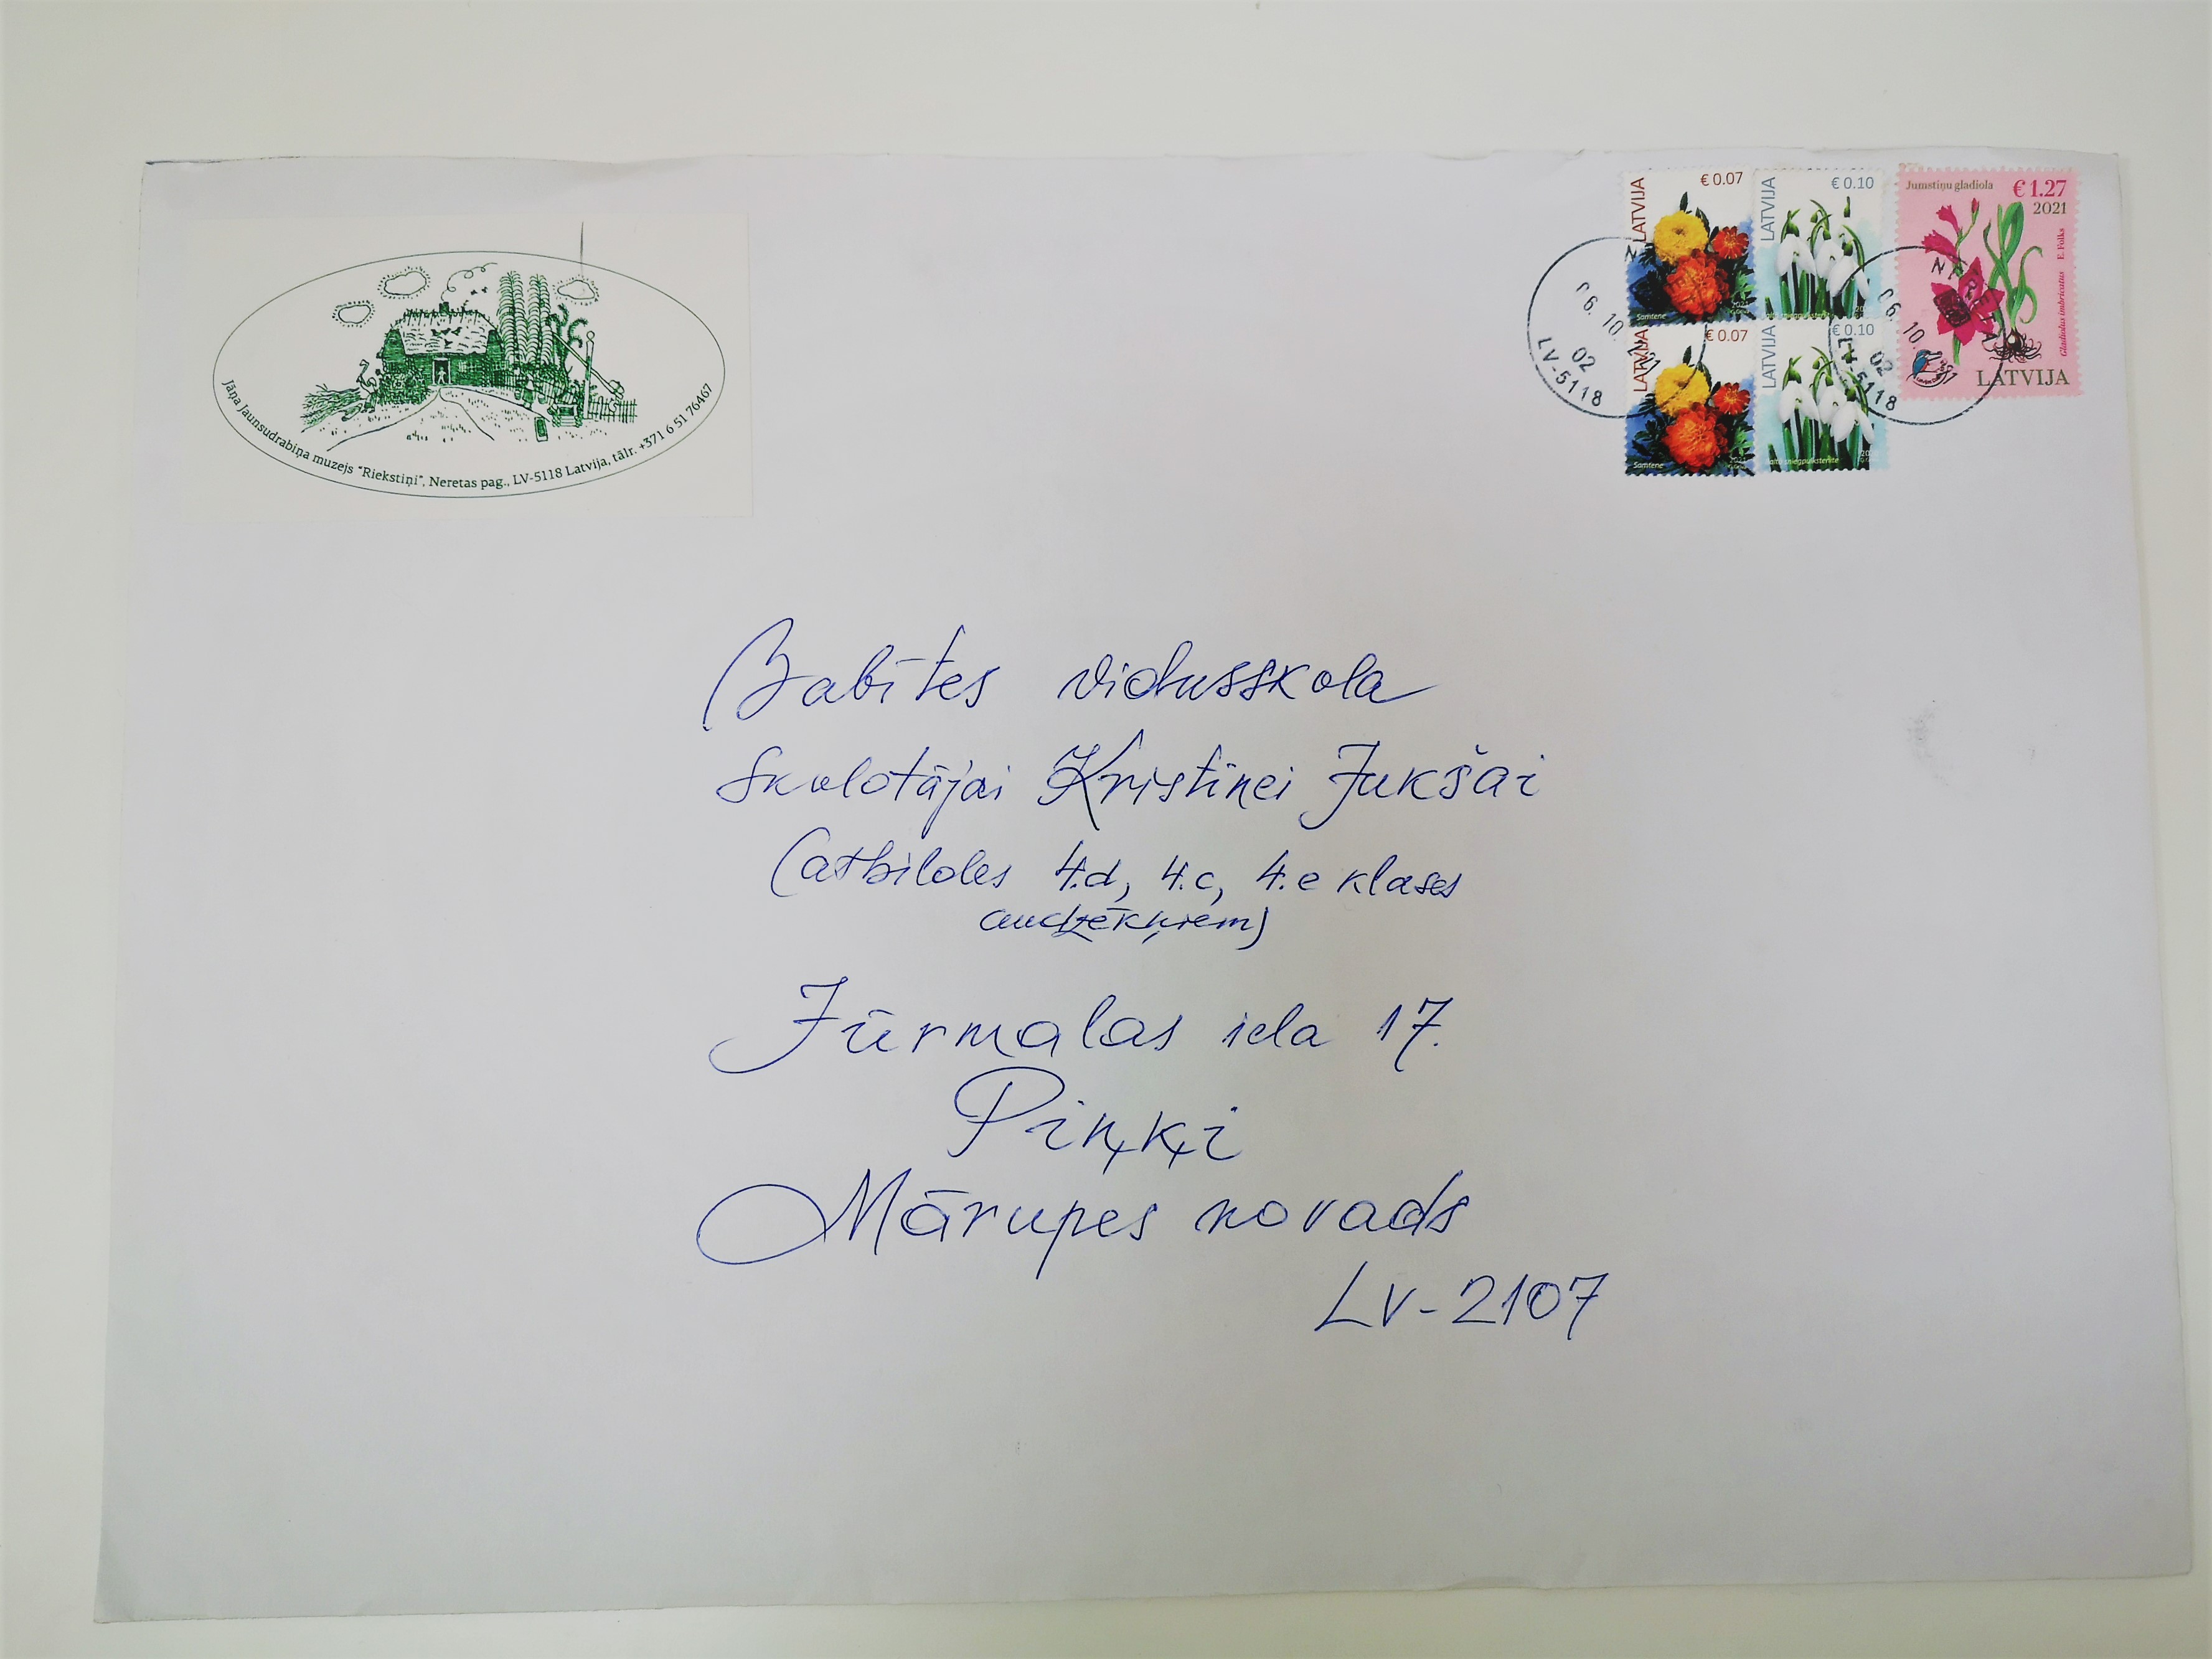 Jāņa Jaunsudrabiņa muzejs "Riekstiņi", Neretas pag., LV-5118 Latvija, tālr. +371 6 51 76467
LATVIJA € 0.07
Samtene
LATVIJA € 0.10
LATVIJA € 0.07
Samtene
LATVIJA € 0.10
Jumstiņu gladiola € 1.27
2021
Gladiolus imbricatus E. Folks
LATVIJA
06. 10.
02
LV-5118
NERETA
06. 10.
02
LV-5118
Babītes vidusskola
skolotājai Kristīnei Jukšai
(atbildes 4.d, 4.c, 4.e klases
audzēkņiem)
Jūrmalas iela 17.
Piņķi
Mārupes novads
LV-2107